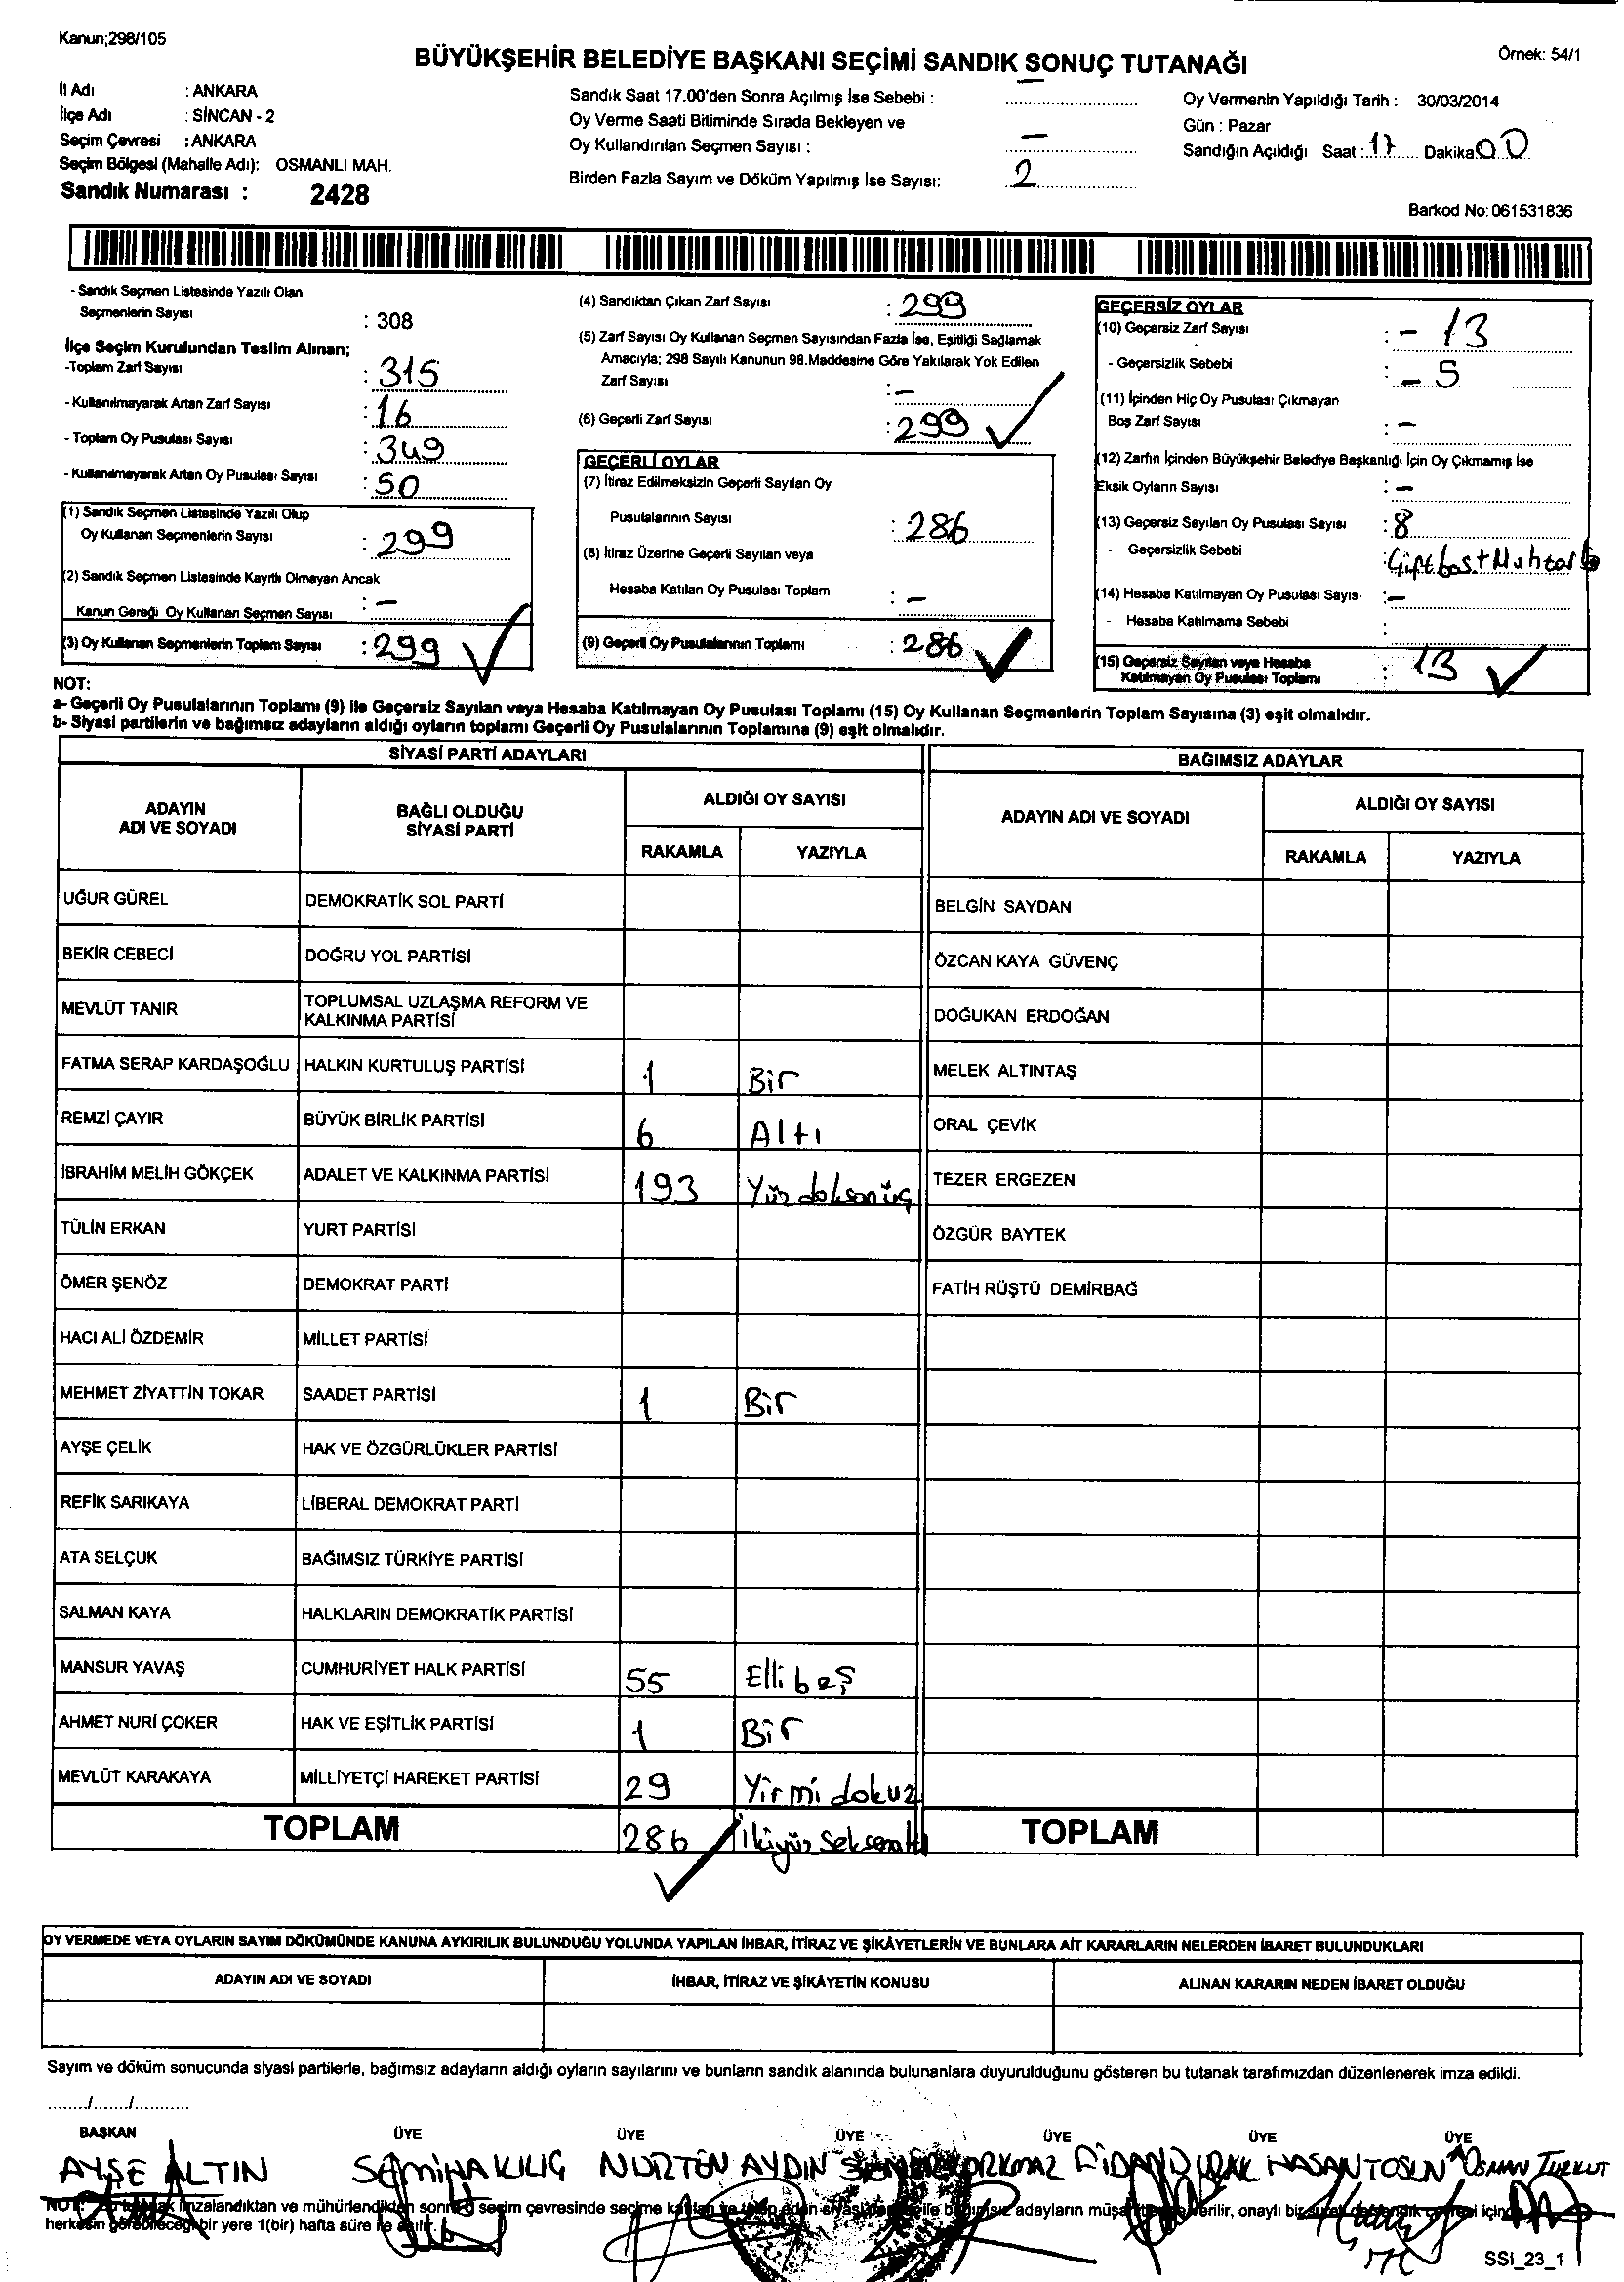 Kanun;298/105
BÜYÜKŞEHİR BELEDİYE BAŞKANI SEÇİMİ SANDIK SONUÇ TUTANAĞI
Örnek: 54/1
İl Adı : ANKARA
İlçe Adı : SİNCAN - 2
Seçim Çevresi : ANKARA
Seçim Bölgesi (Mahalle Adı): OSMANLI MAH.
Sandık Numarası : 2428
Sandık Saat 17.00'den Sonra Açılmış İse Sebebi : —
Oy Verme Saati Bitiminde Sırada Bekleyen ve
Oy Kullandırılan Seçmen Sayısı : —
Birden Fazla Sayım ve Döküm Yapılmış İse Sayısı: 2
Oy Vermenin Yapıldığı Tarih : 30/03/2014
Gün : Pazar
Sandığın Açıldığı Saat : 17 Dakika 00
Barkod No: 061531836
- Sandık Seçmen Listesinde Yazılı Olan
Seçmenlerin Sayısı : 308
İlçe Seçim Kurulundan Teslim Alınan;
-Toplam Zarf Sayısı : 315
- Kullanılmayarak Artan Zarf Sayısı : 16
- Toplam Oy Pusulası Sayısı : 349
- Kullanılmayarak Artan Oy Pusulası Sayısı : 50
(1) Sandık Seçmen Listesinde Yazılı Olup
Oy Kullanan Seçmenlerin Sayısı : 299
(2) Sandık Seçmen Listesinde Kayıtlı Olmayan Ancak
Kanun Gereği Oy Kullanan Seçmen Sayısı : —
(3) Oy Kullanan Seçmenlerin Toplam Sayısı : 299
(4) Sandıktan Çıkan Zarf Sayısı : 299
(5) Zarf Sayısı Oy Kullanan Seçmen Sayısından Fazla İse, Eşitliği Sağlamak
Amacıyla; 298 Sayılı Kanunun 98.Maddesine Göre Yakılarak Yok Edilen
Zarf Sayısı : —
(6) Geçerli Zarf Sayısı : 299
GEÇERLİ OYLAR
(7) İtiraz Edilmeksizin Geçerli Sayılan Oy
Pusulalarının Sayısı : 286
(8) İtiraz Üzerine Geçerli Sayılan veya
Hesaba Katılan Oy Pusulası Toplamı : —
(9) Geçerli Oy Pusulalarının Toplamı : 286
GEÇERSİZ OYLAR
(10) Geçersiz Zarf Sayısı : - 13
- Geçersizlik Sebebi : - 5
(11) İçinden Hiç Oy Pusulası Çıkmayan
Boş Zarf Sayısı : —
(12) Zarfın İçinden Büyükşehir Belediye Başkanlığı İçin Oy Çıkmamış İse
Eksik Oyların Sayısı : —
(13) Geçersiz Sayılan Oy Pusulası Sayısı : 8
- Geçersizlik Sebebi :
(14) Hesaba Katılmayan Oy Pusulası Sayısı : —
- Hesaba Katılmama Sebebi :
(15) Geçersiz Sayılan veya Hesaba
Katılmayan Oy Pusulası Toplamı : 13
NOT:
a- Geçerli Oy Pusulalarının Toplamı (9) ile Geçersiz Sayılan veya Hesaba Katılmayan Oy Pusulası Toplamı (15) Oy Kullanan Seçmenlerin Toplam Sayısına (3) eşit olmalıdır.
b- Siyasi partilerin ve bağımsız adayların aldığı oyların toplamı Geçerli Oy Pusulalarının Toplamına (9) eşit olmalıdır.
SİYASİ PARTİ ADAYLARI
ADAYIN ADI VE SOYADI BAĞLI OLDUĞU SİYASİ PARTİ ALDIĞI OY SAYISI
RAKAMLA YAZIYLA
UĞUR GÜREL DEMOKRATİK SOL PARTİ
BEKİR CEBECİ DOĞRU YOL PARTİSİ
MEVLÜT TANIR TOPLUMSAL UZLAŞMA REFORM VE KALKINMA PARTİSİ
FATMA SERAP KARDAŞOĞLU HALKIN KURTULUŞ PARTİSİ 1 Bir
REMZİ ÇAYIR BÜYÜK BİRLİK PARTİSİ 6 Altı
İBRAHİM MELİH GÖKÇEK ADALET VE KALKINMA PARTİSİ 193 Yüz doksanüç
TÜLİN ERKAN YURT PARTİSİ
ÖMER ŞENÖZ DEMOKRAT PARTİ
HACI ALİ ÖZDEMİR MİLLET PARTİSİ
MEHMET ZİYATTİN TOKAR SAADET PARTİSİ 1 Bir
AYŞE ÇELİK HAK VE ÖZGÜRLÜKLER PARTİSİ
REFİK SARIKAYA LİBERAL DEMOKRAT PARTİ
ATA SELÇUK BAĞIMSIZ TÜRKİYE PARTİSİ
SALMAN KAYA HALKLARIN DEMOKRATİK PARTİSİ
MANSUR YAVAŞ CUMHURİYET HALK PARTİSİ 55 Elli beş
AHMET NURİ ÇOKER HAK VE EŞİTLİK PARTİSİ 1 Bir
MEVLÜT KARAKAYA MİLLİYETÇİ HAREKET PARTİSİ 29 Yirmi dokuz
TOPLAM 286 İkiyüz Seksenaltı
BAĞIMSIZ ADAYLAR
ADAYIN ADI VE SOYADI ALDIĞI OY SAYISI
RAKAMLA YAZIYLA
BELGİN SAYDAN
ÖZCAN KAYA GÜVENÇ
DOĞUKAN ERDOĞAN
MELEK ALTINTAŞ
ORAL ÇEVİK
TEZER ERGEZEN
ÖZGÜR BAYTEK
FATİH RÜŞTÜ DEMİRBAĞ
TOPLAM
OY VERMEDE VEYA OYLARIN SAYIM DÖKÜMÜNDE KANUNA AYKIRILIK BULUNDUĞU YOLUNDA YAPILAN İHBAR, İTİRAZ VE ŞİKÂYETLERİN VE BUNLARA AİT KARARLARIN NELERDEN İBARET BULUNDUKLARI
ADAYIN ADI VE SOYADI İHBAR, İTİRAZ VE ŞİKÂYETİN KONUSU ALINAN KARARIN NEDEN İBARET OLDUĞU
Sayım ve döküm sonucunda siyasi partilerle, bağımsız adayların aldığı oyların sayılarını ve bunların sandık alanında bulunanlara duyurulduğunu gösteren bu tutanak tarafımızdan düzenlenerek imza edildi.
......../......./...........
BAŞKAN ÜYE ÜYE ÜYE ÜYE ÜYE ÜYE
AYŞE ALTIN SEMİHA KILIÇ NURTEN AYDIN KORKMAZ HASAN TOSUN OSMAN TURKUT
NOT: imzalandıktan ve mühürlendikten sonra seçim çevresinde seçime bağımsız adayların onaylı bir
herkesin görebileceği bir yere 1(bir) hafta süre ile asılır.
SSI_23_1